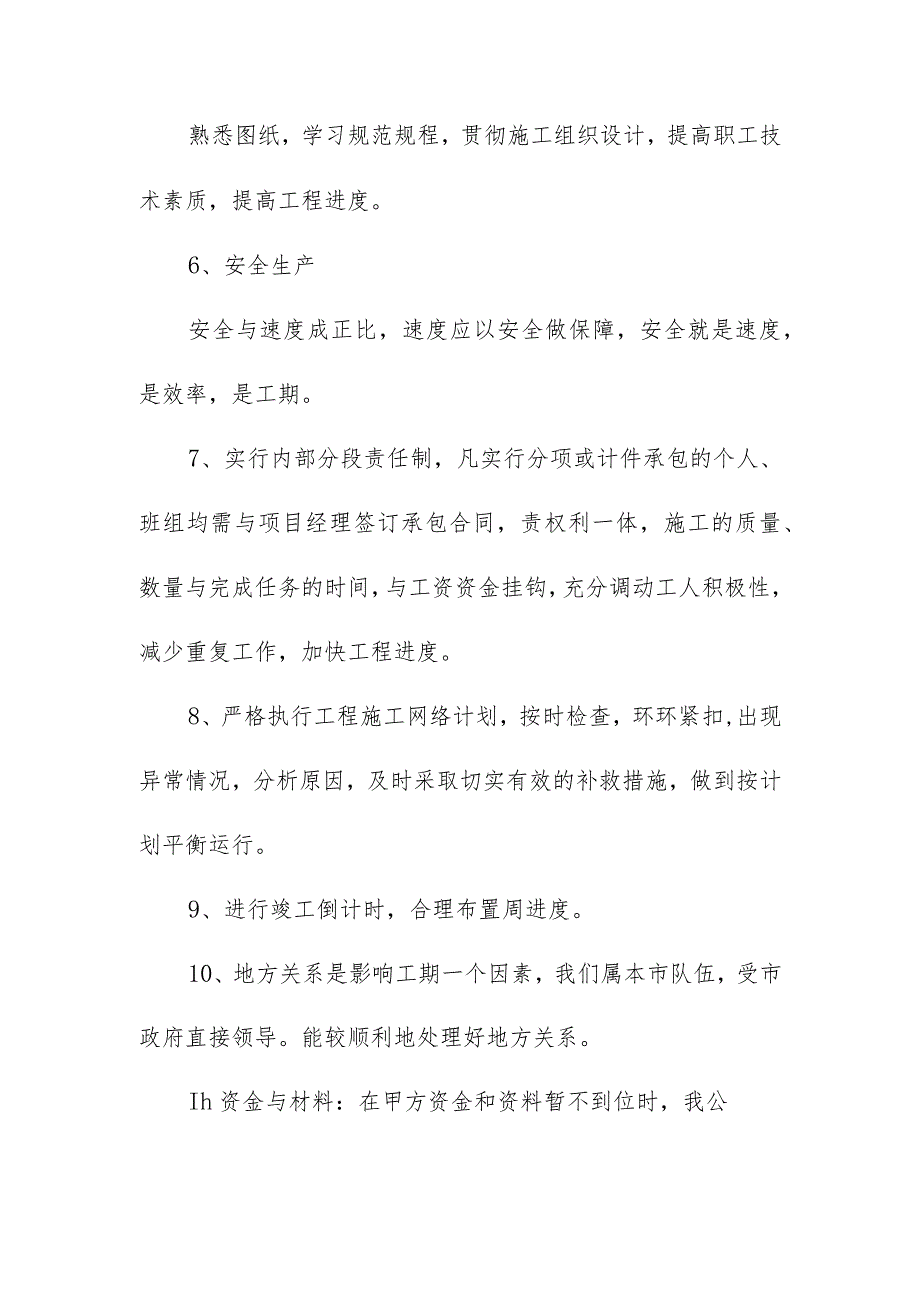 熟悉图纸，学习规范规程，贯彻施工组织设计，提高职工技
术素质，提高工程进度。
6、安全生产
安全与速度成正比，速度应以安全做保障，安全就是速度，
是效率，是工期。
7、实行内部分段责任制，凡实行分项或计件承包的个人、
班组均需与项目经理签订承包合同，责权利一体，施工的质量、
数量与完成任务的时间，与工资资金挂钩，充分调动工人积极性，
减少重复工作，加快工程进度。
8、严格执行工程施工网络计划，按时检查，环环紧扣,出现
异常情况，分析原因，及时采取切实有效的补救措施，做到按计
划平衡运行。
9、进行竣工倒计时，合理布置周进度。
10、地方关系是影响工期一个因素，我们属本市队伍，受市
政府直接领导。能较顺利地处理好地方关系。
Ih资金与材料：在甲方资金和资料暂不到位时，我公